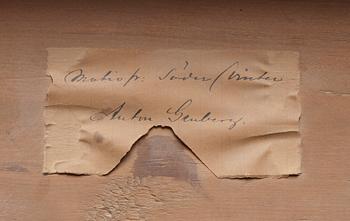 Motiv fr. Söder (vinter
Anton Genberg.